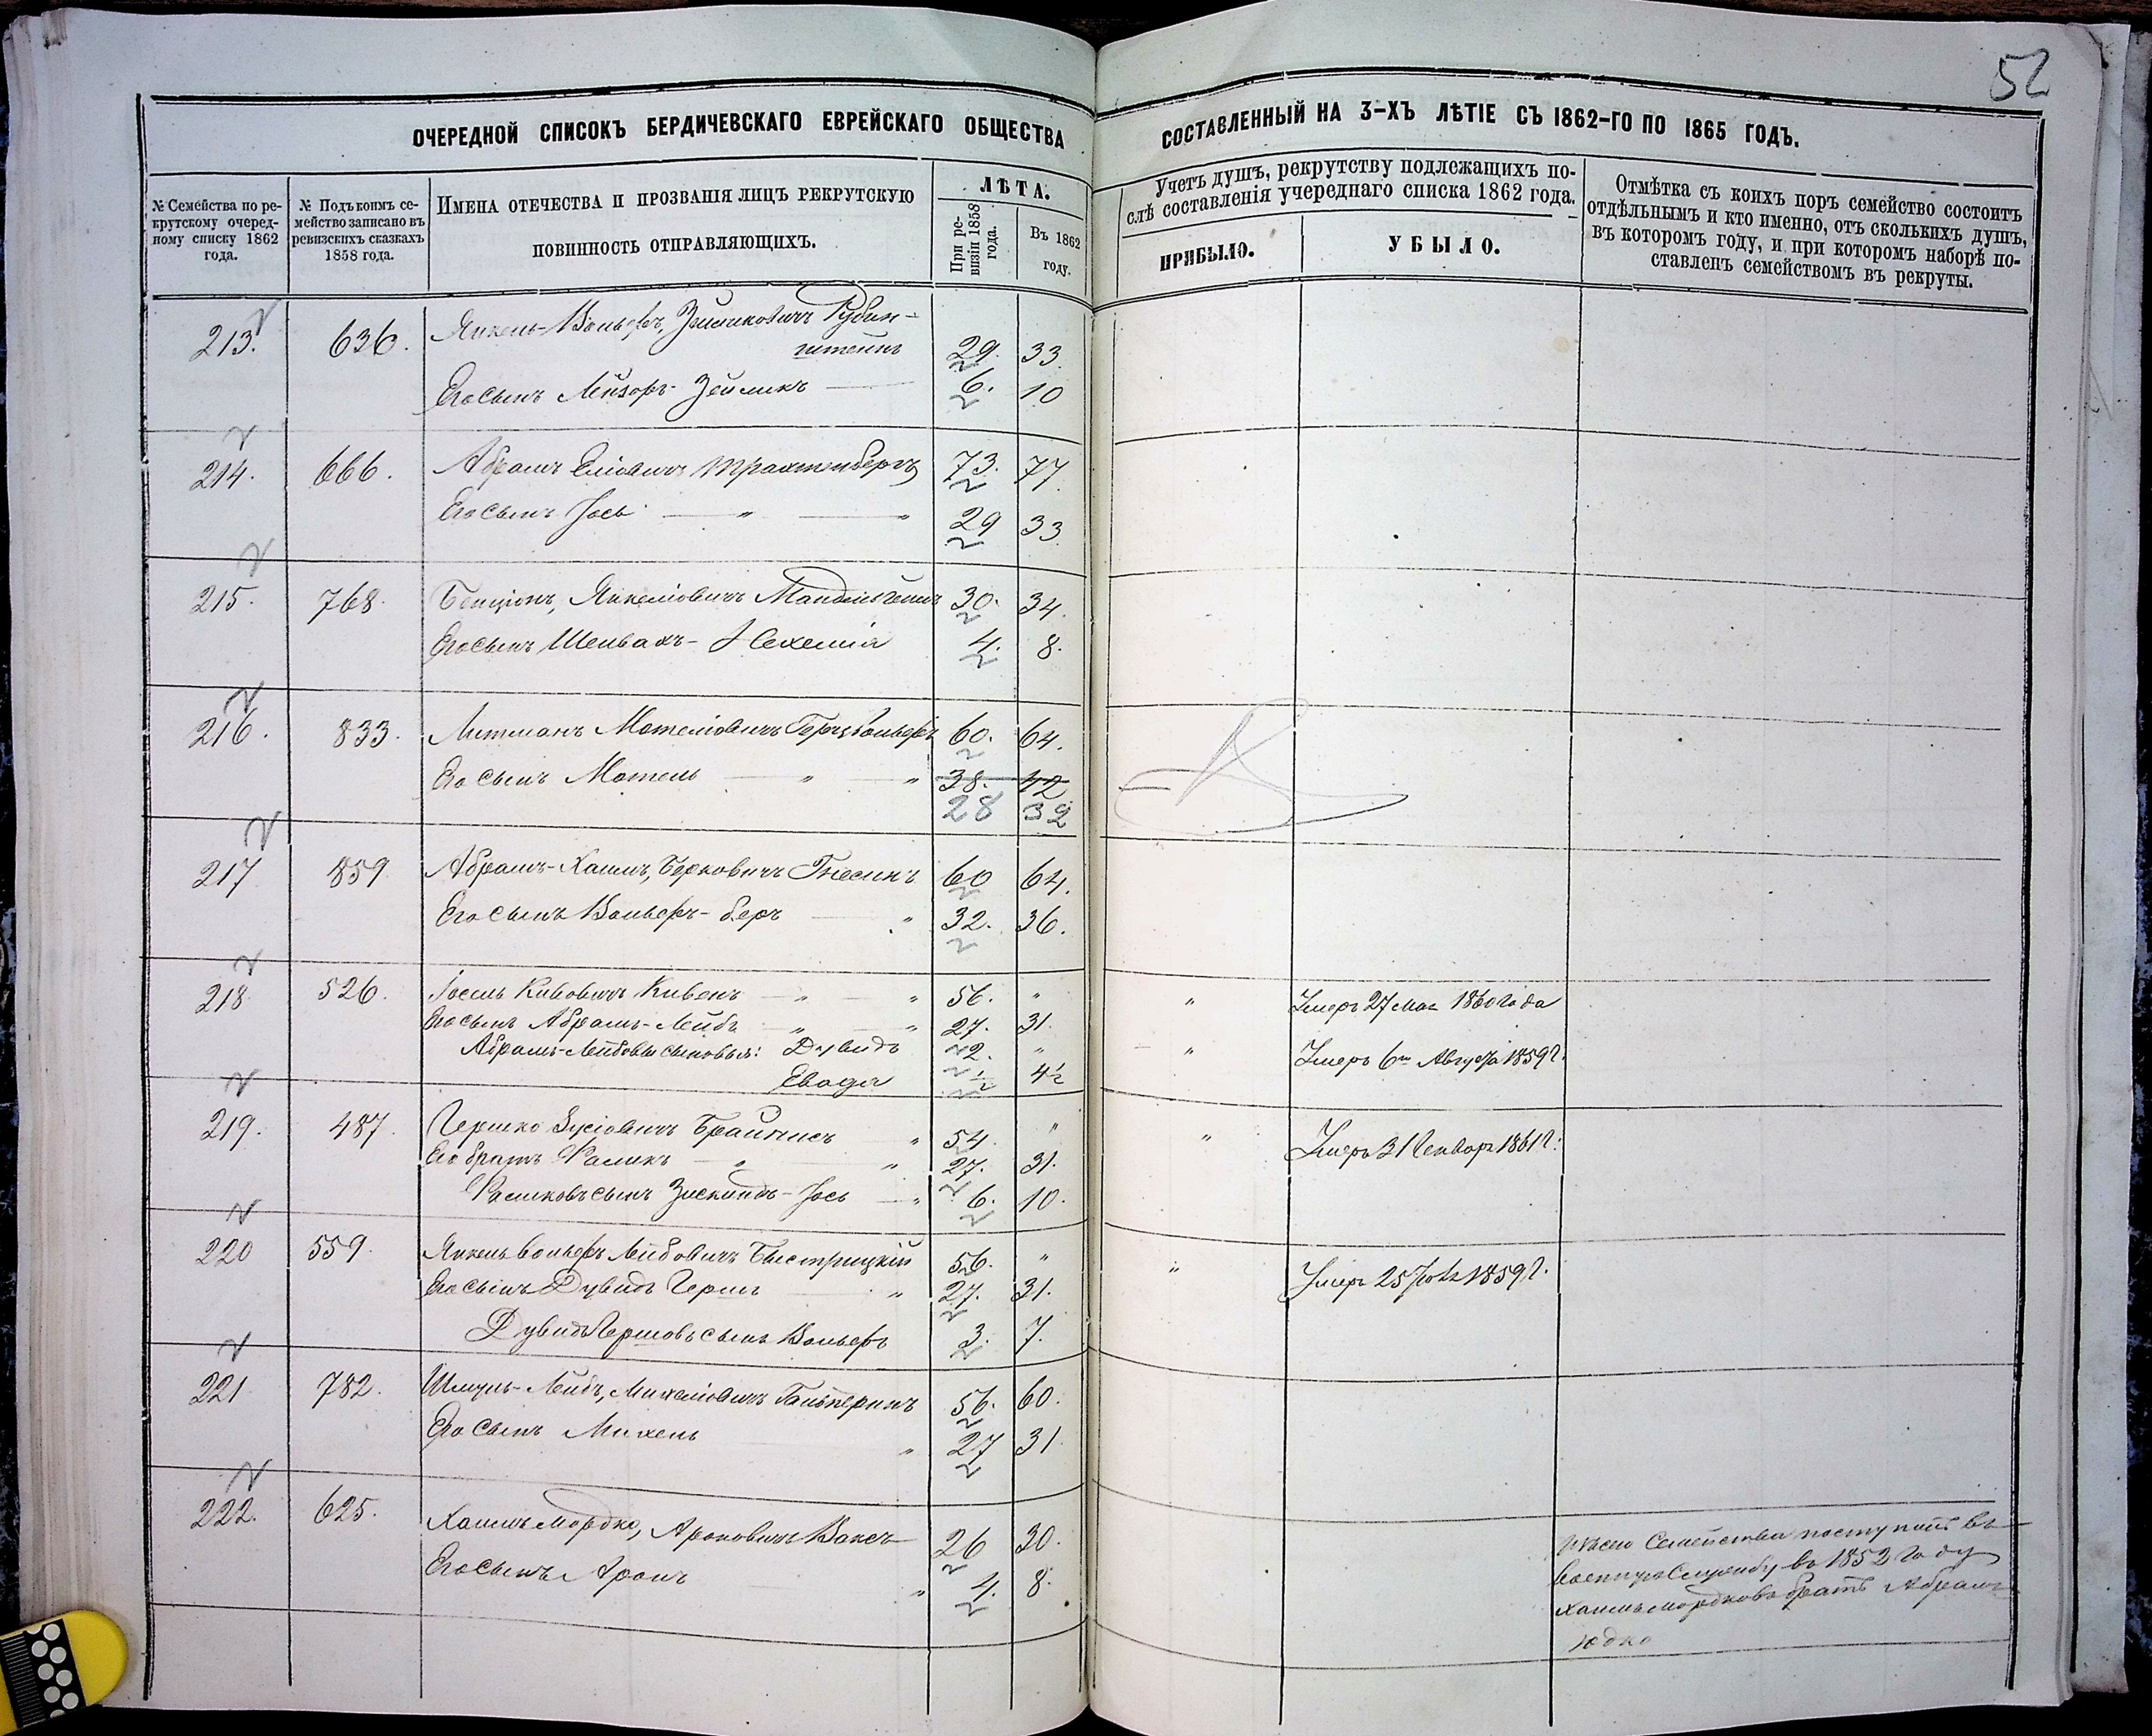 52
ОЧЕРЕДНОЙ СПИСОКЪ БЕРДИЧЕВСКАГО ЕВРЕЙСКАГО ОБЩЕСТВА СОСТАВЛЕННЫЙ НА 3-ХЪ ЛѢТІЕ СЪ 1862-ГО ПО 1865 ГОДЪ.
№ Семейства по рекрутскому очередному списку 1862 года.
№ Подъ коимъ семейство записано въ ревизскихъ сказкахъ 1858 года.
ИМЕНА ОТЕЧЕСТВА И ПРОЗВАНІЯ ЛИЦЪ РЕКРУТСКУЮ
ПОВИННОСТЬ ОТПРАВЛЯЮЩИХЪ.
ЛѢТА.
При ревизіи 1858 года.
Въ 1862 году.
Учетъ душъ, рекрутству подлежащихъ по-
слѣ составленія учереднаго списка 1862 года.
ПРИБЫЛО.
УБЫЛО.
Отмѣтка съ коихъ поръ семейство состоитъ
отдѣльнымъ и кто именно, отъ сколькихъ душъ,
въ которомъ году, и при которомъ наборѣ по-
ставленъ семействомъ въ рекруты.
213. 636. Янкель-Вольфъ, Зейликовичъ Рубин-
штейнъ 29. 33.
Его сынъ Лейзоръ-Зейликъ 6. 10
214. 666. Абрамъ Еліовичъ Трахтенбергъ 73. 77.
Его сынъ Іось " " 29 33
215. 768. Бенціонъ, Янкеліовичъ 30. 34.
Его сынъ Шевахъ-Нехемія 4. 8.
216. 833. Литманъ Мотеліовичъ Герцвольфъ 60. 64.
Его сынъ Мотель " " 38. 42
28 32
217 859 Абрамъ-Хаимъ, Берковичъ Гнесинъ 60 64.
Его сынъ Вольфъ-Беръ " 32. 36.
218. 526. Іосель Кивовичъ Кивенъ " " 56. " " Умеръ 27 Мая 1860 года
Его сынъ Абрамъ-Лейбъ " " 27. 31.
Абрамъ-Лейбовы сыновья: Дувидъ 2. " " Умеръ 6го Августа 1859 г.
½ 4½
219. 487. Гершко Зусіовичъ " 54. " " Умеръ 31 Января 1861 г.
Его братъ Фаликъ " " 27. 31.
Фаликовъ сынъ Зискиндъ-Іось " 6. 10.
220 559. Янкель Вольфъ Лейбовичъ Быстрицкій 56. " " Умеръ 25 1859 г.
Его сынъ Дувидъ Гершъ " 27. 31.
Дувидъ Гершовъ сынъ Вольфъ 3. 7.
221 782. Шмуль-Лейбъ, Михеліовичъ Гальперинъ 56. 60.
Его сынъ Михель " 27 31.
222. 625. Хаимъ Мордко, Ароновичъ Ваксъ 26 30.
Его сынъ Аронъ " 4. 8.
Семейства поступилъ въ
военную службу въ 1852 году
Хаимъ Мордковъ братъ Абрамъ
Юдко